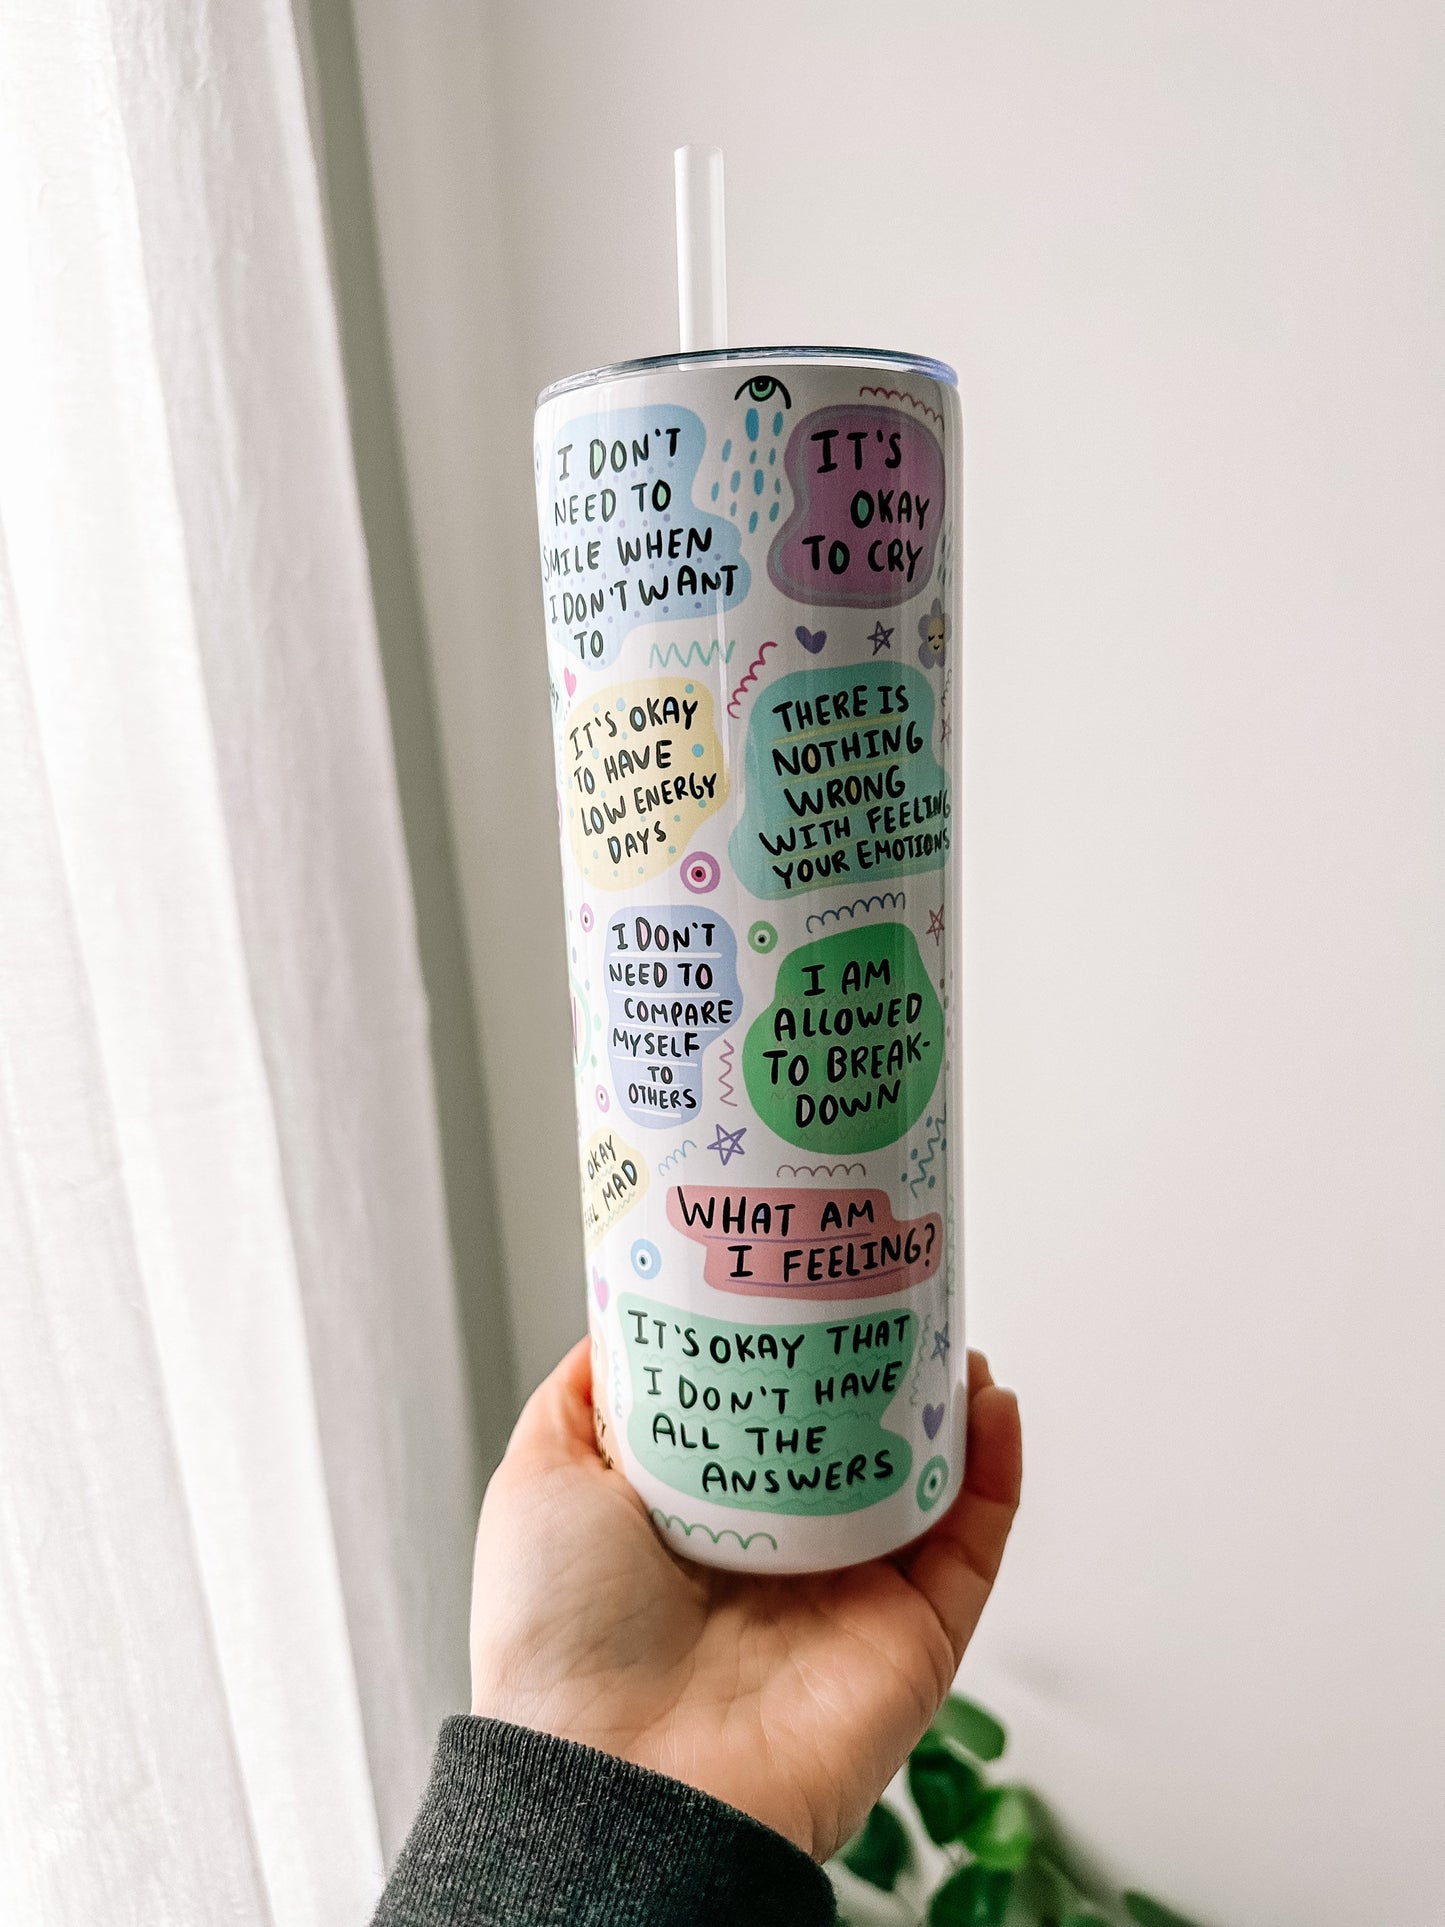 I DON'T
NEED TO
SMILE WHEN
I DON'T WANT
TO
IT'S
OKAY
TO CRY
IT'S OKAY
TO HAVE
LOW ENERGY
DAYS
THERE IS
NOTHING
WRONG
WITH FEELING
YOUR EMOTIONS
I DON'T
NEED TO
COMPARE
MYSELF
TO
OTHERS
I AM
ALLOWED
TO BREAK-
DOWN
OKAY
MAD
WHAT AM
I FEELING?
IT'S OKAY THAT
I DON'T HAVE
ALL THE
ANSWERS